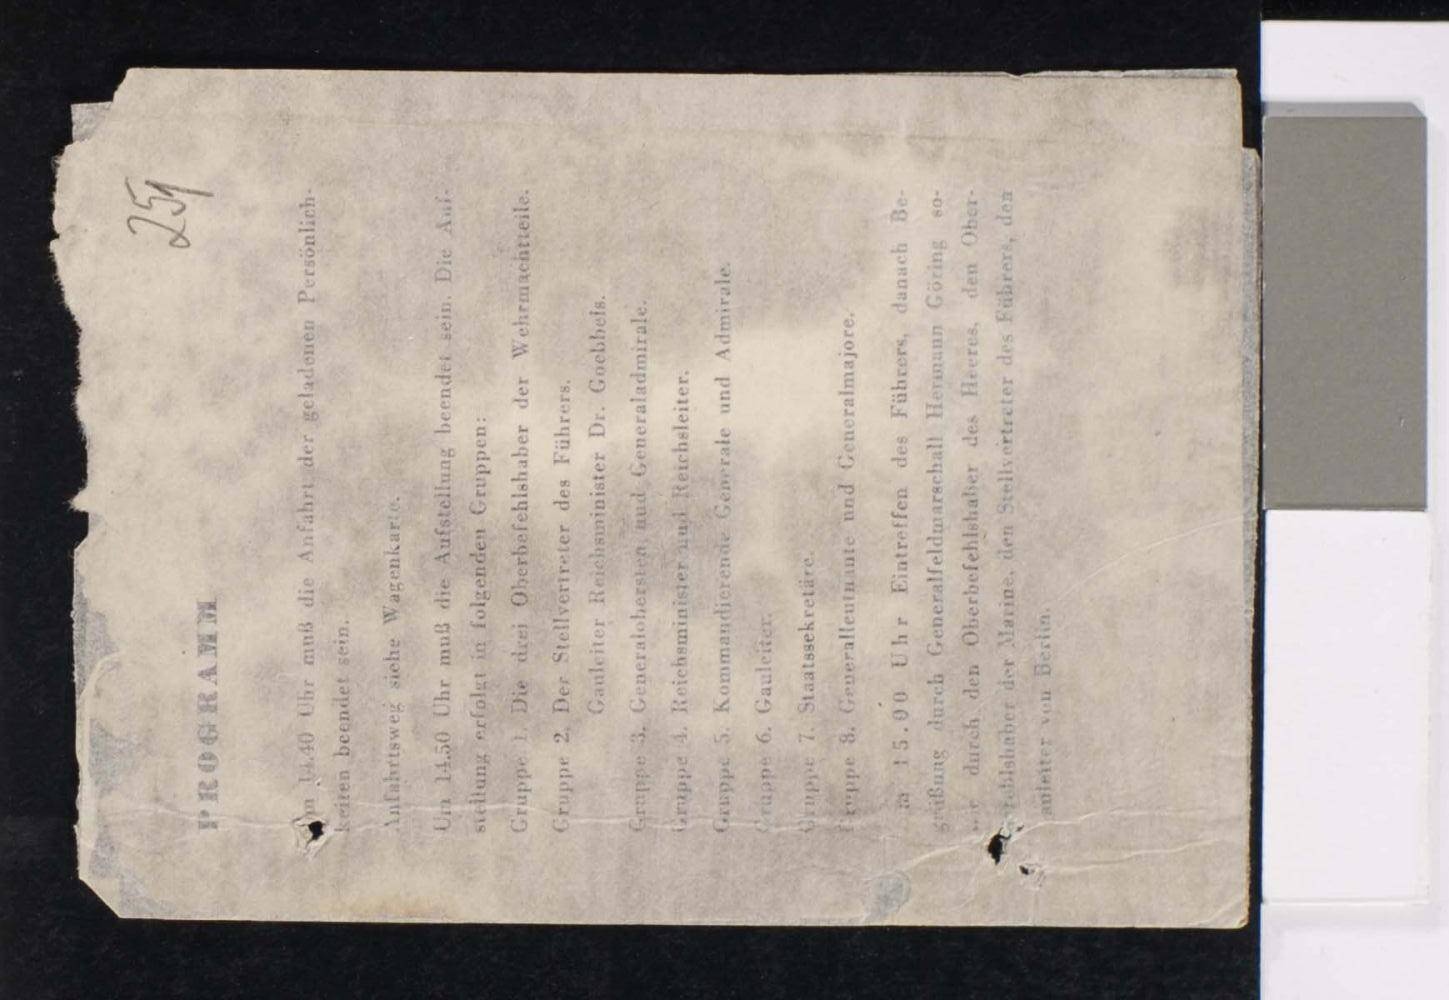 251
PROGRAMM
Um 14.40 Uhr muß die Anfahrt der geladenen Persönlich-
keiten beendet sein.
Anfahrtsweg siehe Wagenkarte.
Um 14.50 Uhr muß die Aufstellung beendet sein. Die Auf-
stellung erfolgt in folgenden Gruppen:
Gruppe 1. Die drei Oberbefehlshaber der Wehrmachtteile.
Gruppe 2. Der Stellvertreter des Führers.
Gauleiter Reichsminister Dr. Goebbels.
Gruppe 3. Generalobersten und Generaladmirale.
Gruppe 4. Reichsminister und Reichsleiter.
Gruppe 5. Kommandierende Generale und Admirale.
Gruppe 6. Gauleiter.
Gruppe 7. Staatssekretäre.
Gruppe 8. Generalleutnante und Generalmajore.
Um 15.00 Uhr Eintreffen des Führers, danach Be-
grüßung durch Generalfeldmarschall Hermann Göring so-
wie durch den Oberbefehlshaber des Heeres, den Ober-
befehlshaber der Marine, den Stellvertreter des Führers, den
Gauleiter von Berlin.